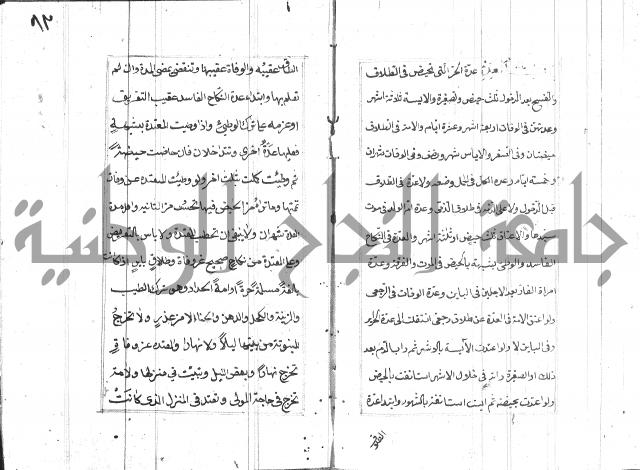 ٩٢
فصل عدة الحرة التي تحيض في الطلاق
والفسخ بعد الدخول ثلث حيض والصغيرة والآيسة ثلاثة اشهر
وعدتهن في الوفات اربعة اشهر وعشرة ايام والامة في الطلاق
حيضتان وفي الصغر والاياس شهر ونصف وفي الوفات شهران
وخمسة ايام وعدة الكل في الحبل وضعه ولا عدة في الطلاق
قبل الدخول ولا على الذمية في طلاق الذمي وعدة ام الولد في موت
سيدها والاعتاق ثلث حيض او ثلثة اشهر والعدة في النكاح
الفاسد والوطئ بشبهة بالحيض في الموت والفرقة وعدة
امراة الفار ابعد الاجلين في الباين وعدة الوفات في الرجعي
ولو اعتق الامة في العدة عن طلاق رجعي انتقلت الى عدة الحراير
وفي الباين لا ولو اعتدت الآيسة بالاشهر ثم رات الدم بعد
ذلك او الصغيرة راته في خلال الاشهر استانفت بالحيض
ولو اعتدت بحيضة ثم ايست استانفت بالشهور وابتداء عدة
الطلاق عقيبه والوفاة عقيبها وتنقضي بمضي المدة وان لم
تعلم بها وابتداء عدة النكاح الفاسد عقيب التفريق
او عزمه على ترك الوطئ واذا وطئت المعتدة بشبهة
فعليها عدة اخرى وتتداخلان فان حاضت حيضة
ثم وطئت كملت بثلث اخر ولو وطئت المعتدة عن وفات
تمتها وما تراه من الحيض فيها تحتسب من الثانية
العدة شهران ولا ينبغي ان تخطب المعتدة ولا باس بالتعريض
وعلى المعتدة من نكاح صحيح عن وفاة وطلاق باين اذا كانت
بالغة مسلمة حرة او امة الحداد وهو ترك الطيب
والزينة والكحل والدهن والحنا الا من عذر ولا تخرج
المبتوتة من بيتها ليلا ولا نهارا والمعتدة عن وفاة
تخرج نهارا وبعض الليل وتبيت في منزلها والامة
تخرج في حاجة المولى وتعتد في المنزل الذي كانت
جامعة النجاح الوطنية